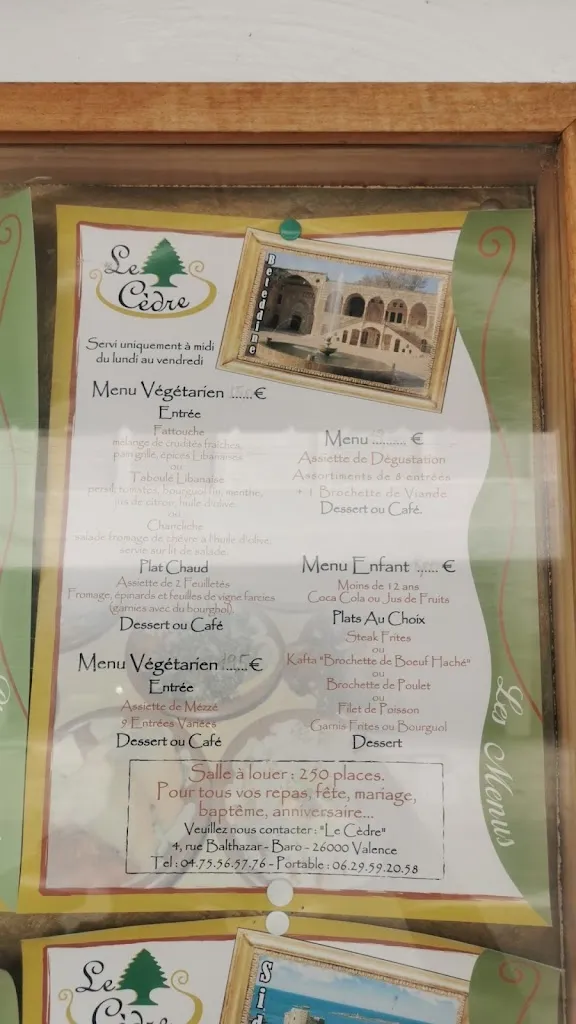 Le
Cèdre
Beteddine
Servi uniquement à midi
du lundi au vendredi
Menu Végétarien ......€
Entrée
Fattouche
mélange de crudités fraîches,
pain grillé, épices Libanaises
ou
Taboulé Libanaise
persil, tomates, bourghol fin, menthe,
jus de citron, huile d'olive
ou
Chancliche
salade fromage de chèvre à l'huile d'olive
servie sur lit de salade.
Plat Chaud
Assiette de 2 Feuilletés
Fromage, épinards et feuilles de vigne farcies
(garnies avec du bourghol)
Dessert ou Café
Menu Végétarien .......€
Entrée
Assiette de Mézzé
9 Entrées Variées
Dessert ou Café
Menu ......... €
Assiette de Dégustation
Assortiments de 8 entrées
+ 1 Brochette de Viande
Dessert ou Café.
Menu Enfant ...... €
Moins de 12 ans
Coca Cola ou Jus de Fruits
Plats Au Choix
Steak Frites
ou
Kafta "Brochette de Boeuf Haché"
ou
Brochette de Poulet
ou
Filet de Poisson
Garnis Frites ou Bourguol
Dessert
Salle à louer : 250 places.
Pour tous vos repas, fête, mariage,
baptême, anniversaire...
Veuillez nous contacter : "Le Cèdre"
4, rue Balthazar - Baro - 26000 Valence
Tel : 04.75.56.57.76 - Portable : 06.29.59.20.58
Les Menus
Le
Cèdre
Sid